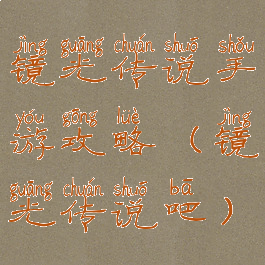 jìng guāng chuán shuō shǒu
镜光传说手
yóu gōng lüè jìng
游攻略（镜
guāng chuán shuō bā
光传说吧）